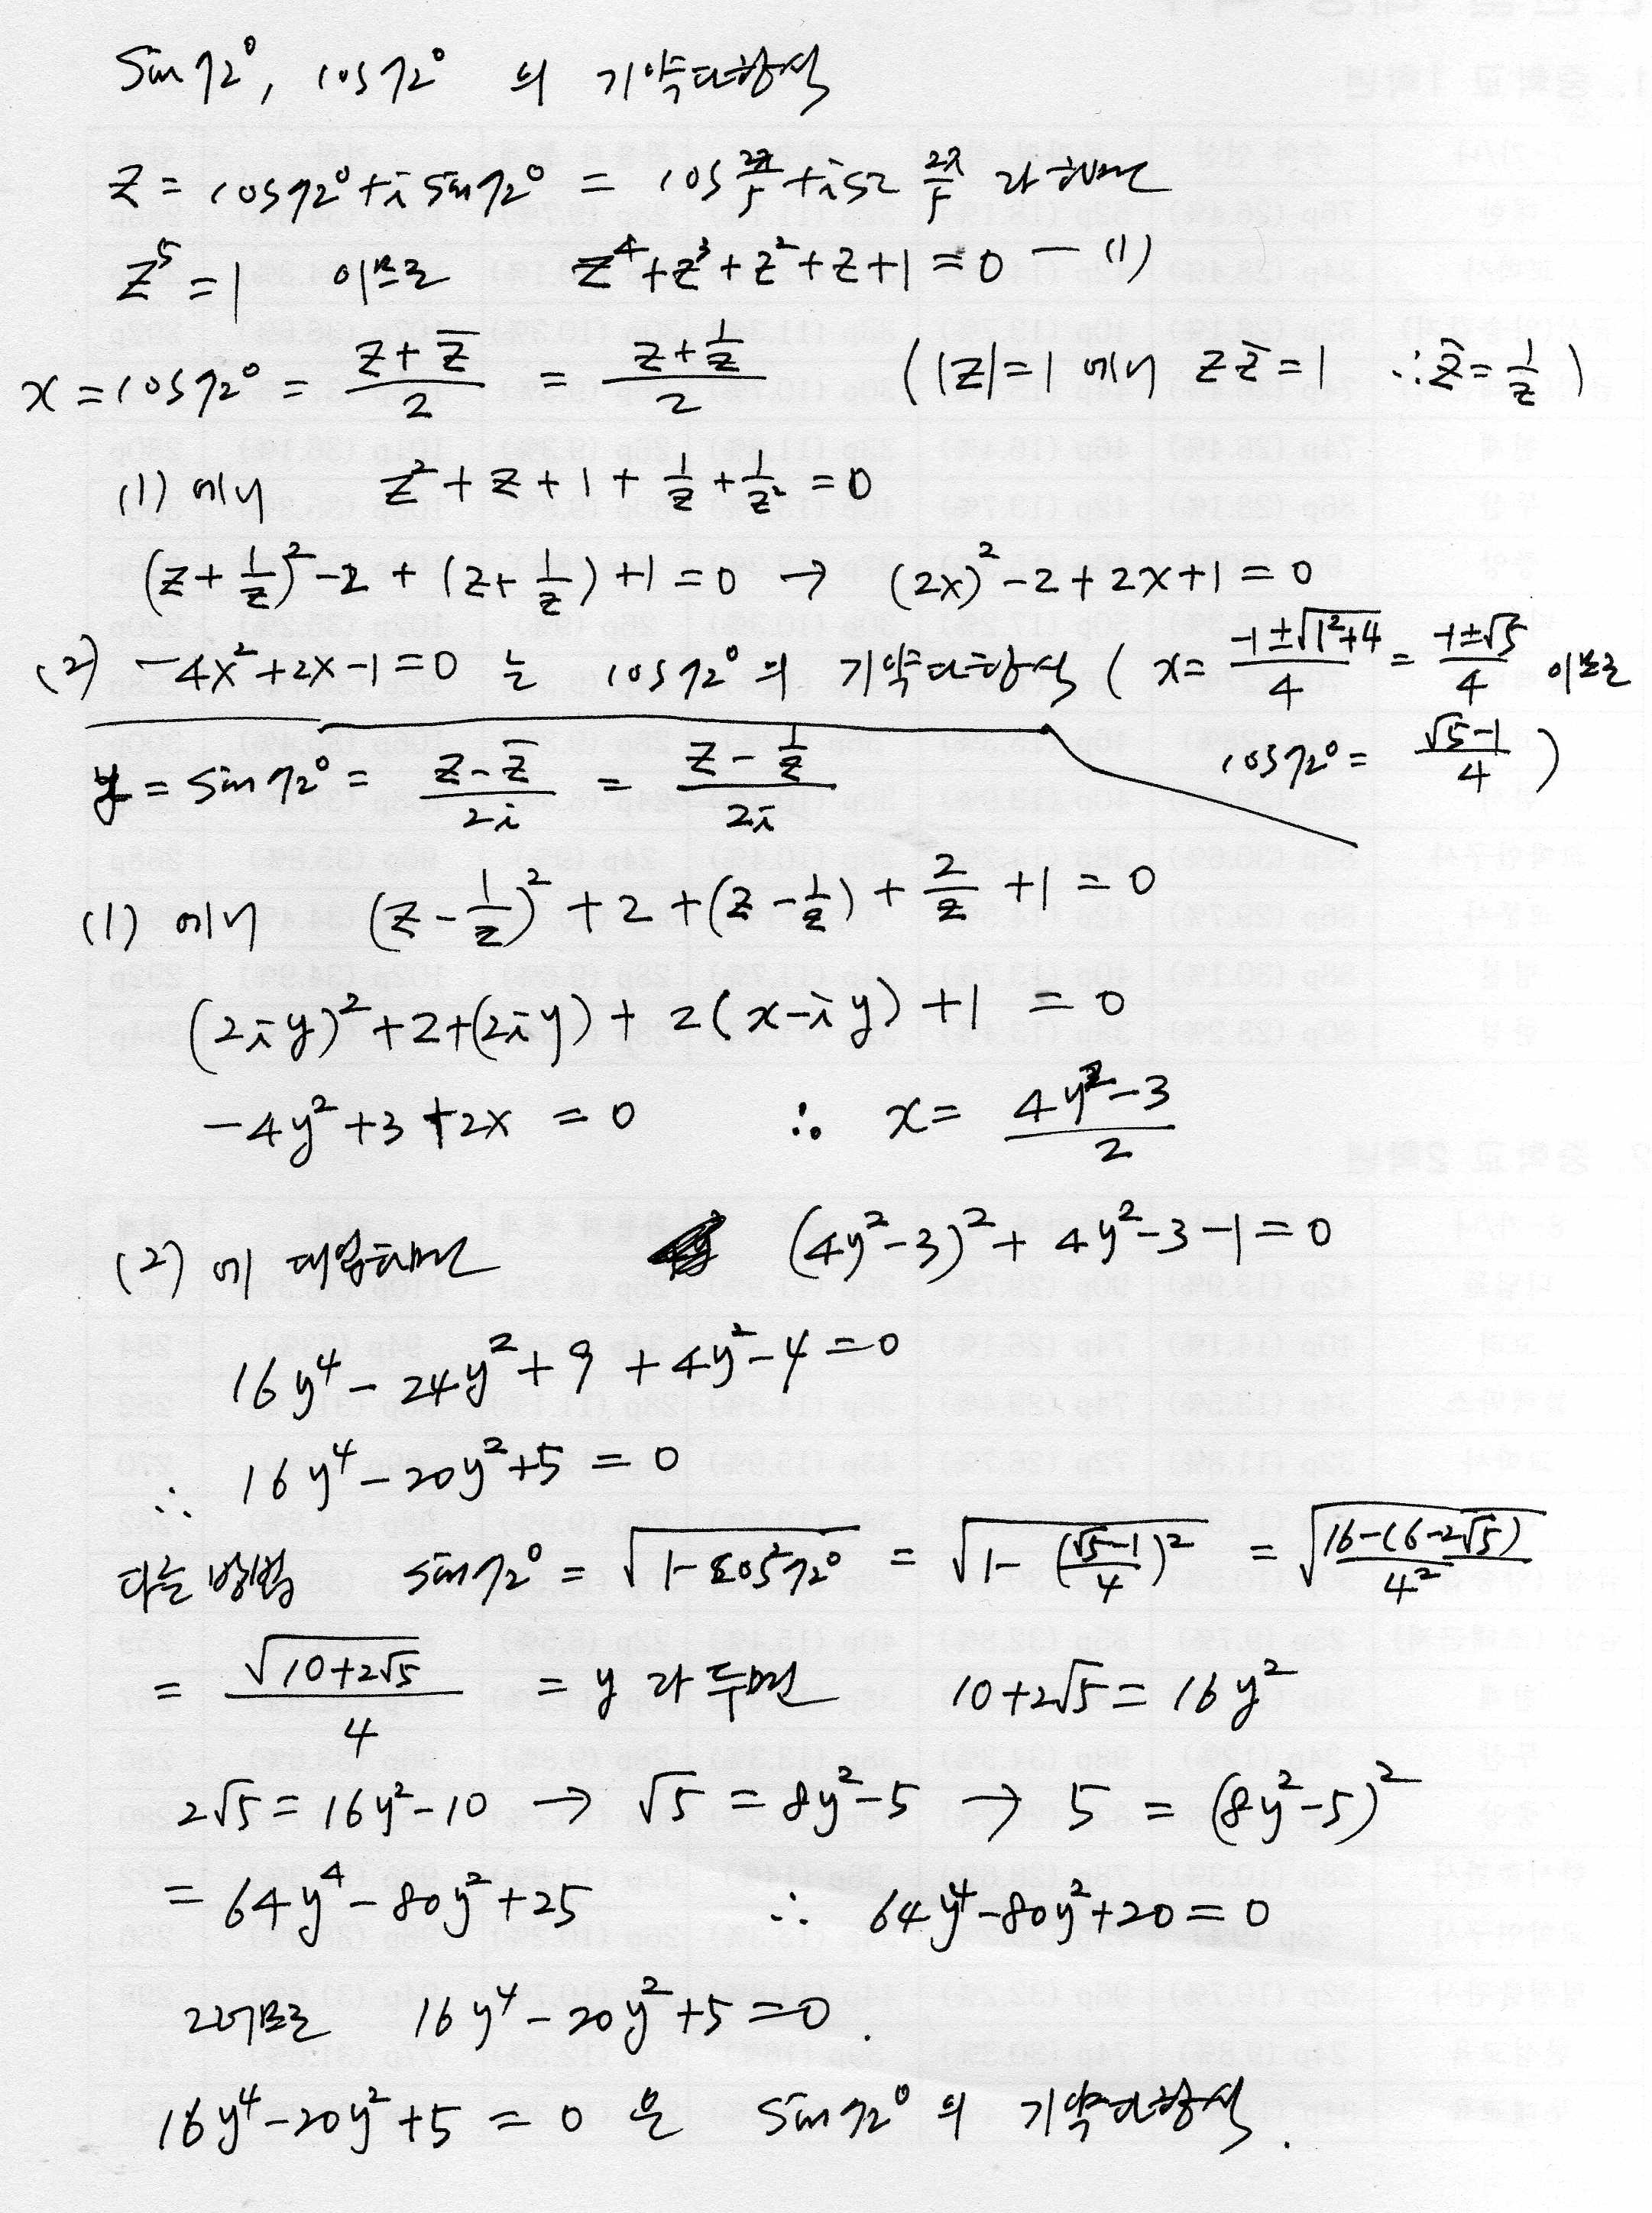 sin72°, cos72° 의 기약다항식
z = cos72°+i sin72° = cos 2π/5 + i sin 2π/5 라 하면
z⁵ = 1 이므로 z⁴+z³+z²+z+1 = 0 — (1)
x = cos72° = (z+z̄)/2 = (z+1/z)/2 (|z|=1 에서 zz̄=1 ∴ z̄=1/z)
(1) 에서 z²+z+1+1/z+1/z² = 0
(z+1/z)²-2+(z+1/z)+1 = 0 → (2x)²-2+2x+1 = 0
(2) -4x²+2x-1=0 는 cos72°의 기약다항식 ( x= (-1±√(1²+4))/4 = (-1±√5)/4 이므로
cos72° = (√5-1)/4 )
y = sin72° = (z-z̄)/2i = (z-1/z)/2i
(1) 에서 (z-1/z)²+2+(z-1/z)+2/z+1 = 0
(2iy)²+2+(2iy)+2(x-iy)+1 = 0
-4y²+3+2x = 0 ∴ x= (4y²-3)/2
(2) 에 대입하면 (4y²-3)²+4y²-3-1=0
16y⁴-24y²+9+4y²-4=0
∴ 16y⁴-20y²+5 = 0
다른 방법 sin72° = √(1-cos²72°) = √(1-((√5-1)/4)²) = √((16-(6-2√5))/4²)
= √(10+2√5)/4 = y 라 두면 10+2√5 = 16y²
2√5 = 16y²-10 → √5 = 8y²-5 → 5 = (8y²-5)²
= 64y⁴-80y²+25 ∴ 64y⁴-80y²+20=0
그러므로 16y⁴-20y²+5=0.
16y⁴-20y²+5 = 0 은 sin72°의 기약다항식.